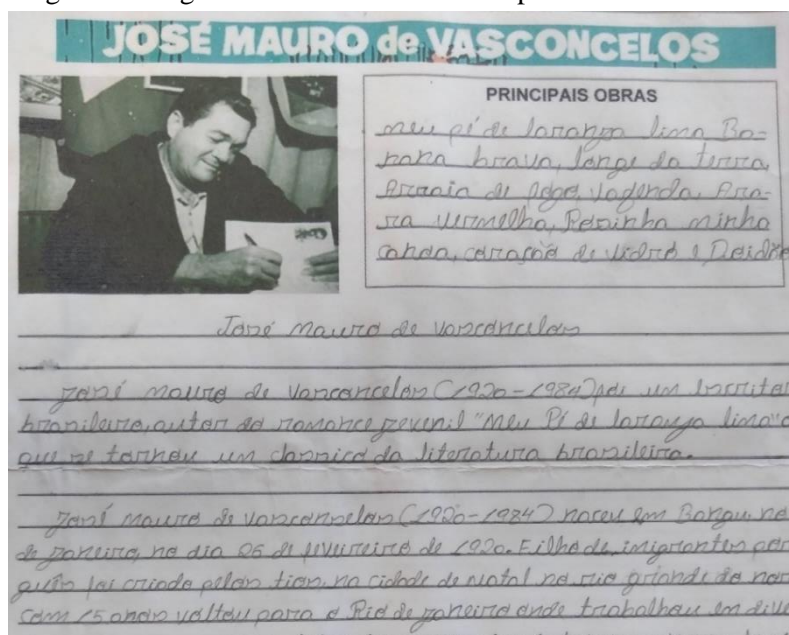 JOSÉ MAURO de VASCONCELOS
PRINCIPAIS OBRAS
meu pé de laranja lima Ba-
nana brava, longe da terra,
Arraia de fogo, vazante, Ara-
ra vermelha, Rosinha minha
canoa, coração de vidro e Doidão
José mauro de vasconcelos
José mauro de Vasconcelos (1920-1984) foi um Escritor
brasileiro, autor do romance juvenil "Meu Pé de laranja lima"
que se tornou um clássico da literatura brasileira.
José mauro de vasconcelos (1920-1984) nasceu em Bangu, no
de janeiro, no dia 26 de fevereiro de 1920. Filho de imigrantes por
guês foi criado pelos tios, na cidade de natal no rio grande do nor
Com 15 anos voltou para o Rio de janeiro onde trabalhou em dive